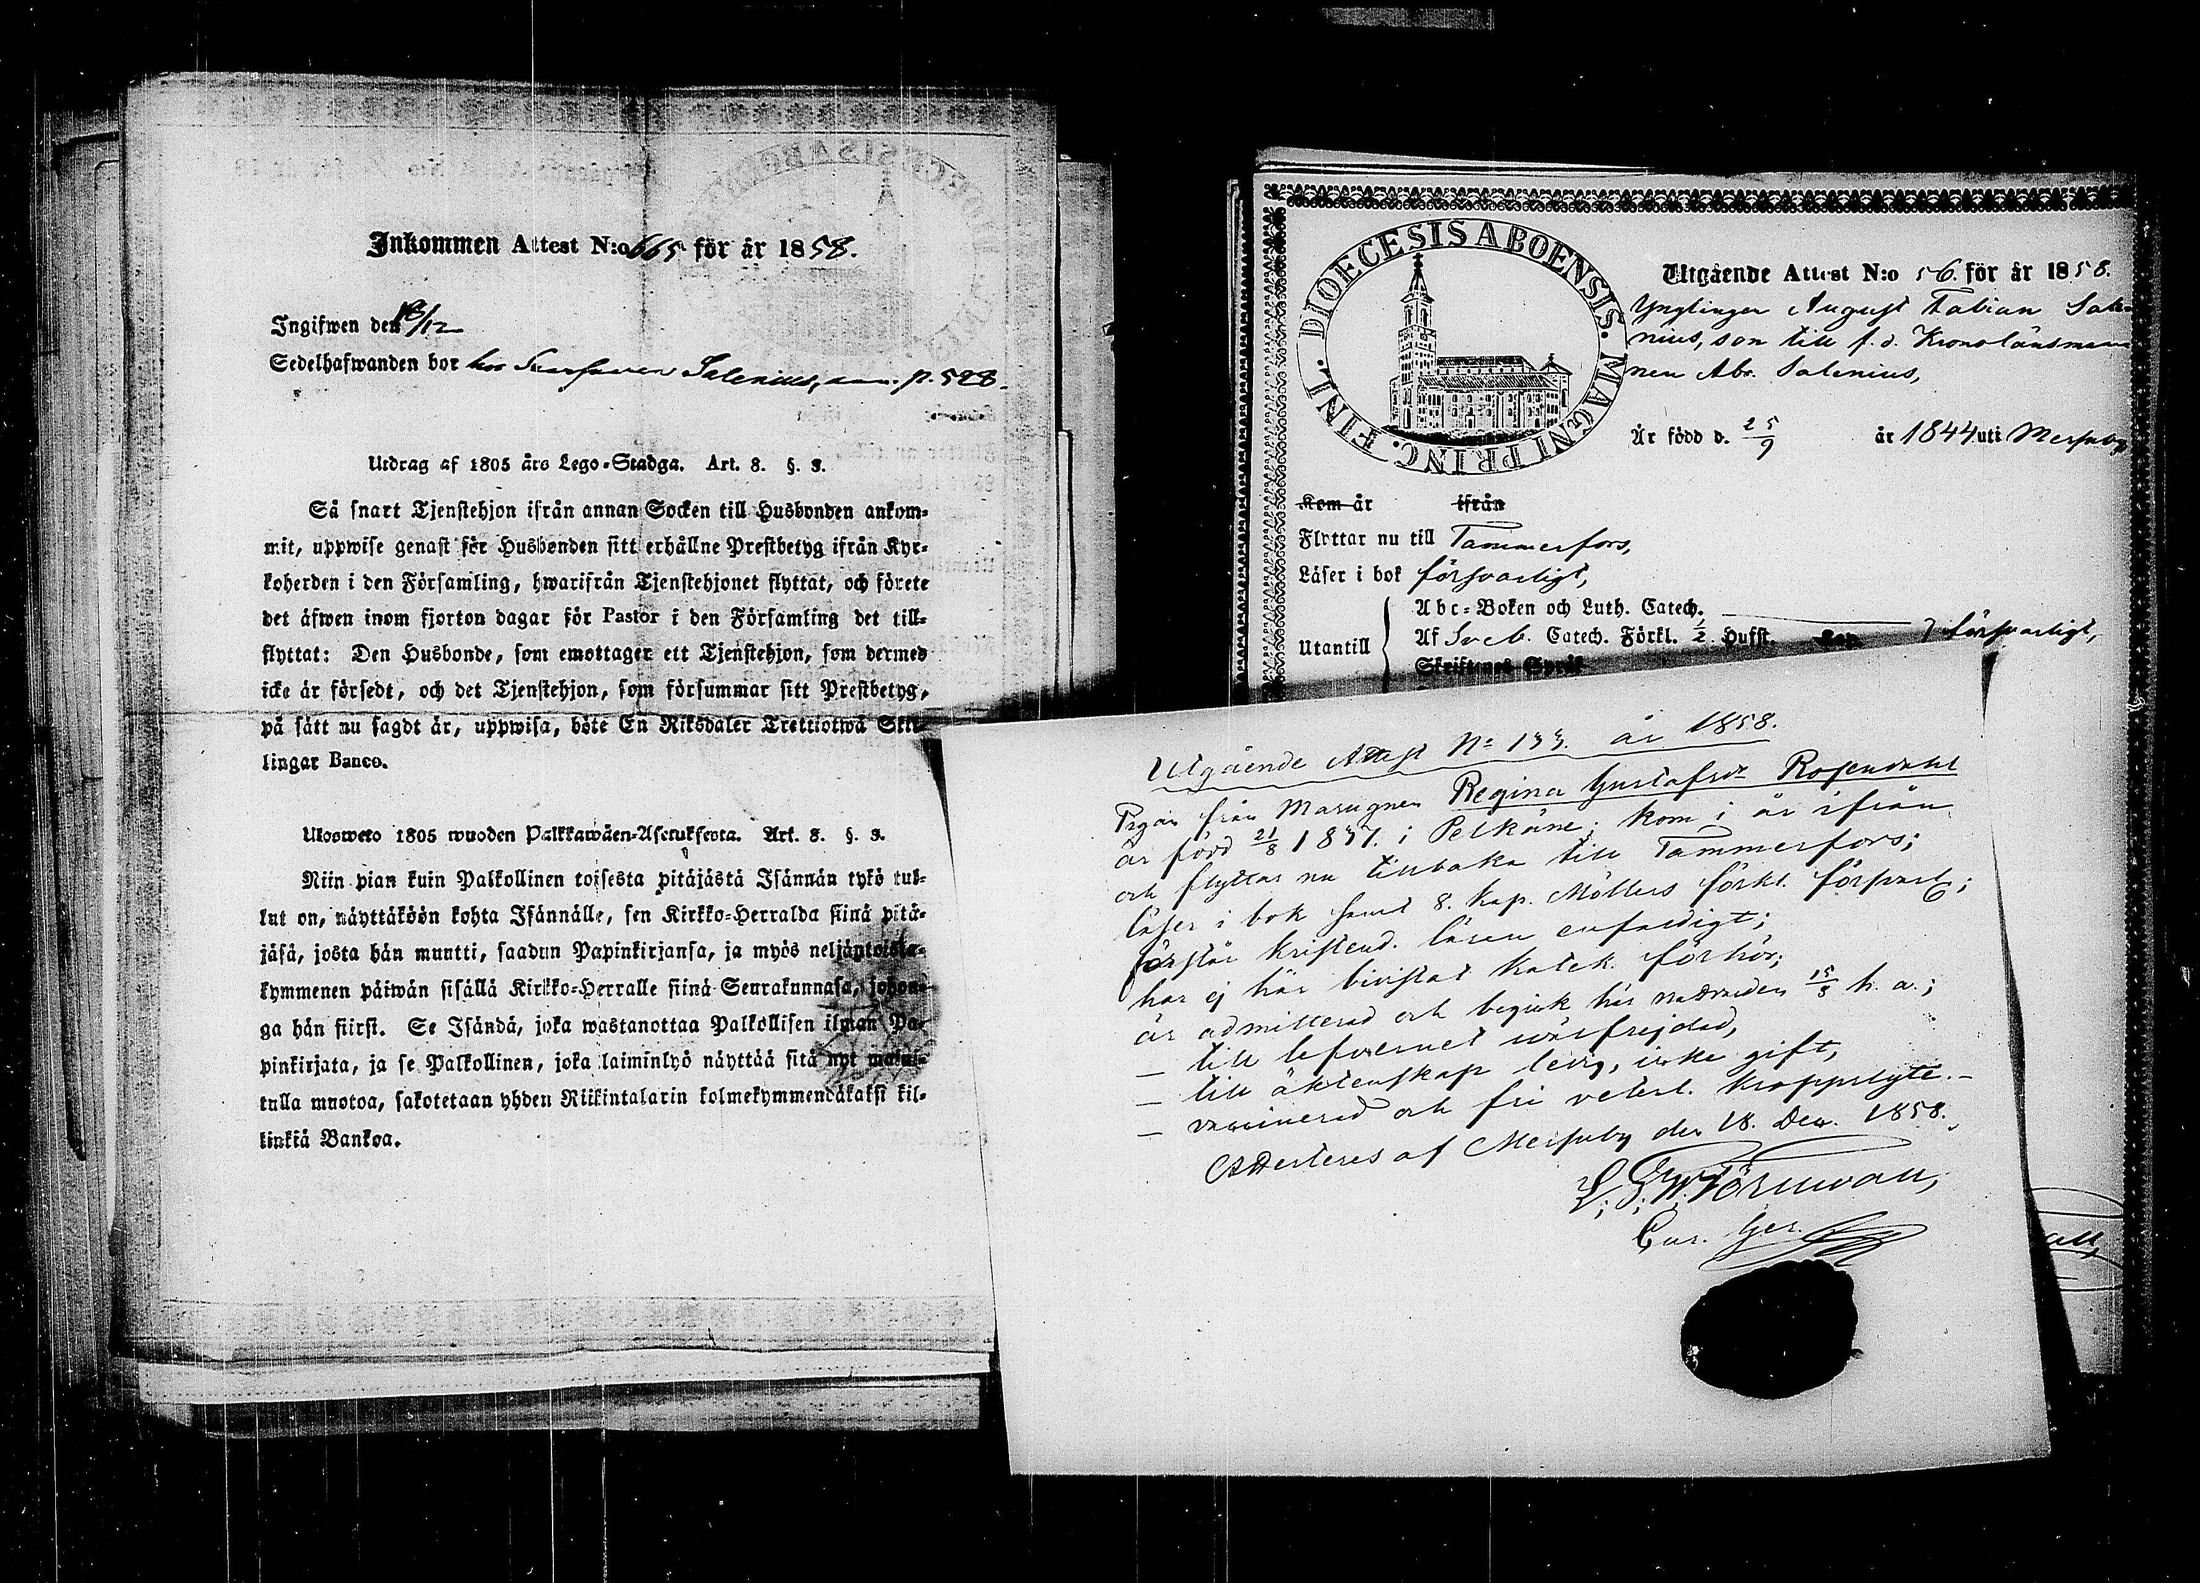 Inkommen Attest N:o 665 för år 1858.
Ingifwen den 18/12
Sedelhafwanden bor hos Salenius, p. 528.
Utdrag af 1805 års Lego-Stadga. Art. 8. §. 3.
Så snart Tjenstehjon ifrån annan Socken till Husbonden ankom-
mit, uppwise genast för Husbonden sitt erhållne Prestbetyg ifrån Kyr-
koherden i den Församling, hwarifrån Tjenstehjonet flyttat, och förete
det äfwen inom fjorton dagar för Pastor i den Församling det till-
flyttat: Den Husbonde, som emottager ett Tjenstehjon, som dermed
icke är försedt, och det Tjenstehjon, som försummar sitt Prestbetyg,
på sätt nu sagdt är, uppwisa, böte En Riksdaler Trettiotwå Skil-
lingar Banco.
Ulosweto 1805 wuoden Palkkawäen-Asetuksesta. Art. 8. §. 3.
Niin pian kuin Palkollinen toisesta pitäjästä Isännän tykö tul-
lut on, näyttäköön kohta Isännälle, sen Kirkko-Herralda siinä pitä-
jäsä, josta hän muutti, saadun Papinkirjansa, ja myös neljäntoista-
kymmenen päiwän sisällä Kirkko-Herralle siinä Seurakunnasa, johon-
ga hän siirsi. Se Isändä, joka wastanottaa Palkollisen ilman Pa-
pinkirjata, ja se Palkollinen, joka laiminlyö näyttää sitä nyt mainit-
tulla muotoa, sakotetaan yhden Riikintalarin kolmekymmendäkaksi kil-
linkiä Bankoa.
DIOECESIS ABOENSIS. MAGNI PRINC. FINL.
Utgående Attest N:o 56. för år 1858.
Ynglingen August Fabian Sale-
nius, son till f. d. Kronolänsman
nen Abr. Salenius,
Är född d. 25/9 år 1844 uti Messuby
Kom år ifrån
Flyttar nu till Tammerfors,
Läser i bok försvarligt,
Abc-Boken och Luth. Catech.
Utantill Af Sveb. Catech. Förkl. 1/2 Hufst. försvarligt,
Skriftenes Språk
Utgående Attest No 133. år 1858.
Pigan från Masugnen Regina Gustafsdr Rosendahl
är född 21/8 1837. i Pelkäne; kom i år ifrån
och flyttar nu tillbaka till Tammerfors;
läser i bok samt 8. kap. Möllers förkl. försvarl;
förstår kristend. läran enfaldigt;
har ej här bivistat katek. förhör;
är admitterad och begick här nattvarden 15/8 h. a.;
— till lefvernet wälfrejdad,
— till äktenskap ledig, icke gift,
— vaccinerad och fri veterl. kroppslyte. —
Attesteras af Messuby den 18. Dec. 1858.
L. G. W. Törnwall,
Cur. Ger.